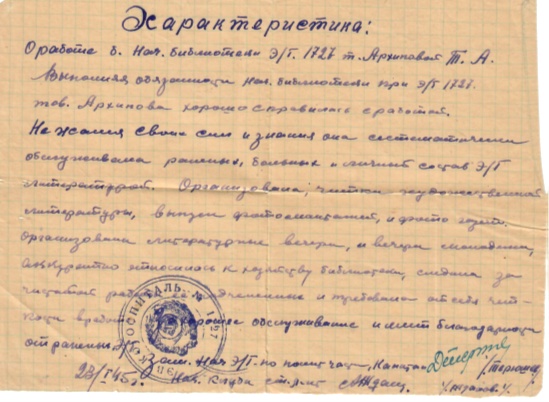 Характеристика:
О работе б. Нач. библиотеки Э/Г. 1727 т. Архиповой Т. А.
Выполняя обязанности нач. библиотеки при Э/Г 1727.
тов. Архипова хорошо справилась с работой.
Не жалея своих сил и знания она систематически
обслуживала раненых, больных и личный состав Э/Г
литературой. Организовала, читки художественной
литературы, выпуск фотомонтажей, и фото газет.
Организовала литературные вечера, и вечера молодежи,
аккуратно относилась к хозяйству библиотеки, следила за
чистотой и требовала от себя
хорошее обслуживание и имеет благодарности
от раненых Э/Г
Зам. Нач Э/Г. по полит част, Капитан
23/I 45 г. Нач. клуба ст. лт
ГОСПИТАЛЬ №